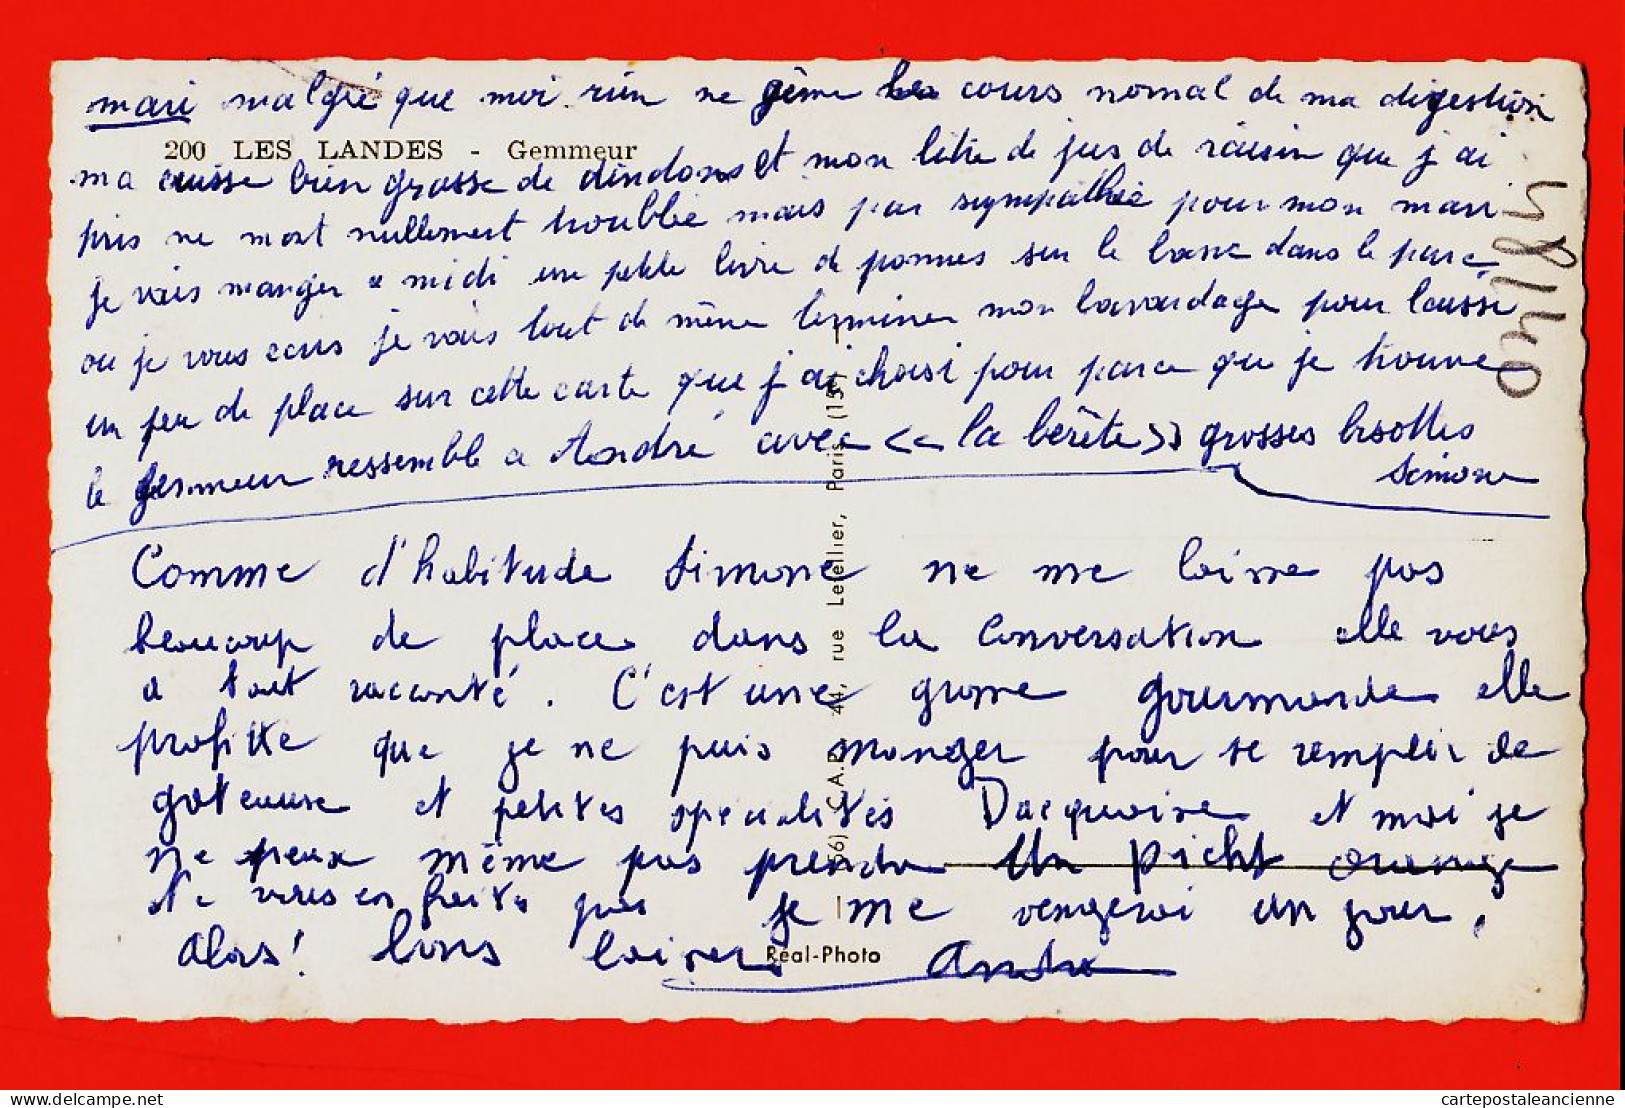 mari malgré que moi rien ne gène le cours normal de ma digestion
200 LES LANDES - Gemmeur
ma cuisse bien grasse de dindons et mon litre de jus de raisin que j'ai
pris ne mont nullement troublée mais par sympathie pour mon mari
je vais manger a midi une petite livre de pommes sur le banc dans le parc
ou je vous ecris je vais tout de même terminer mon bavardage pour laisser
un peu de place sur cette carte que j'ai choisi pour parce que je trouve
le gemmeur ressemble a André avec << la bérète >> grosses bisottes
Simone
Comme d'habitude Simone ne me laisse pas
beaucoup de place dans la conversation elle vous
a tout raconté. C'est une grosse gourmande elle
profitte que je ne puis manger pour se remplir de
gateaux et petites spécialités Dacquoise et moi je
ne peux même pas prendre Un Picht orange
Ne vous en faite pas je me vengerai un jour.
Alors! bons baisers André
C.A.P. 44, rue Letellier, Paris (15e)
Réal-Photo
cartepostaleancienne